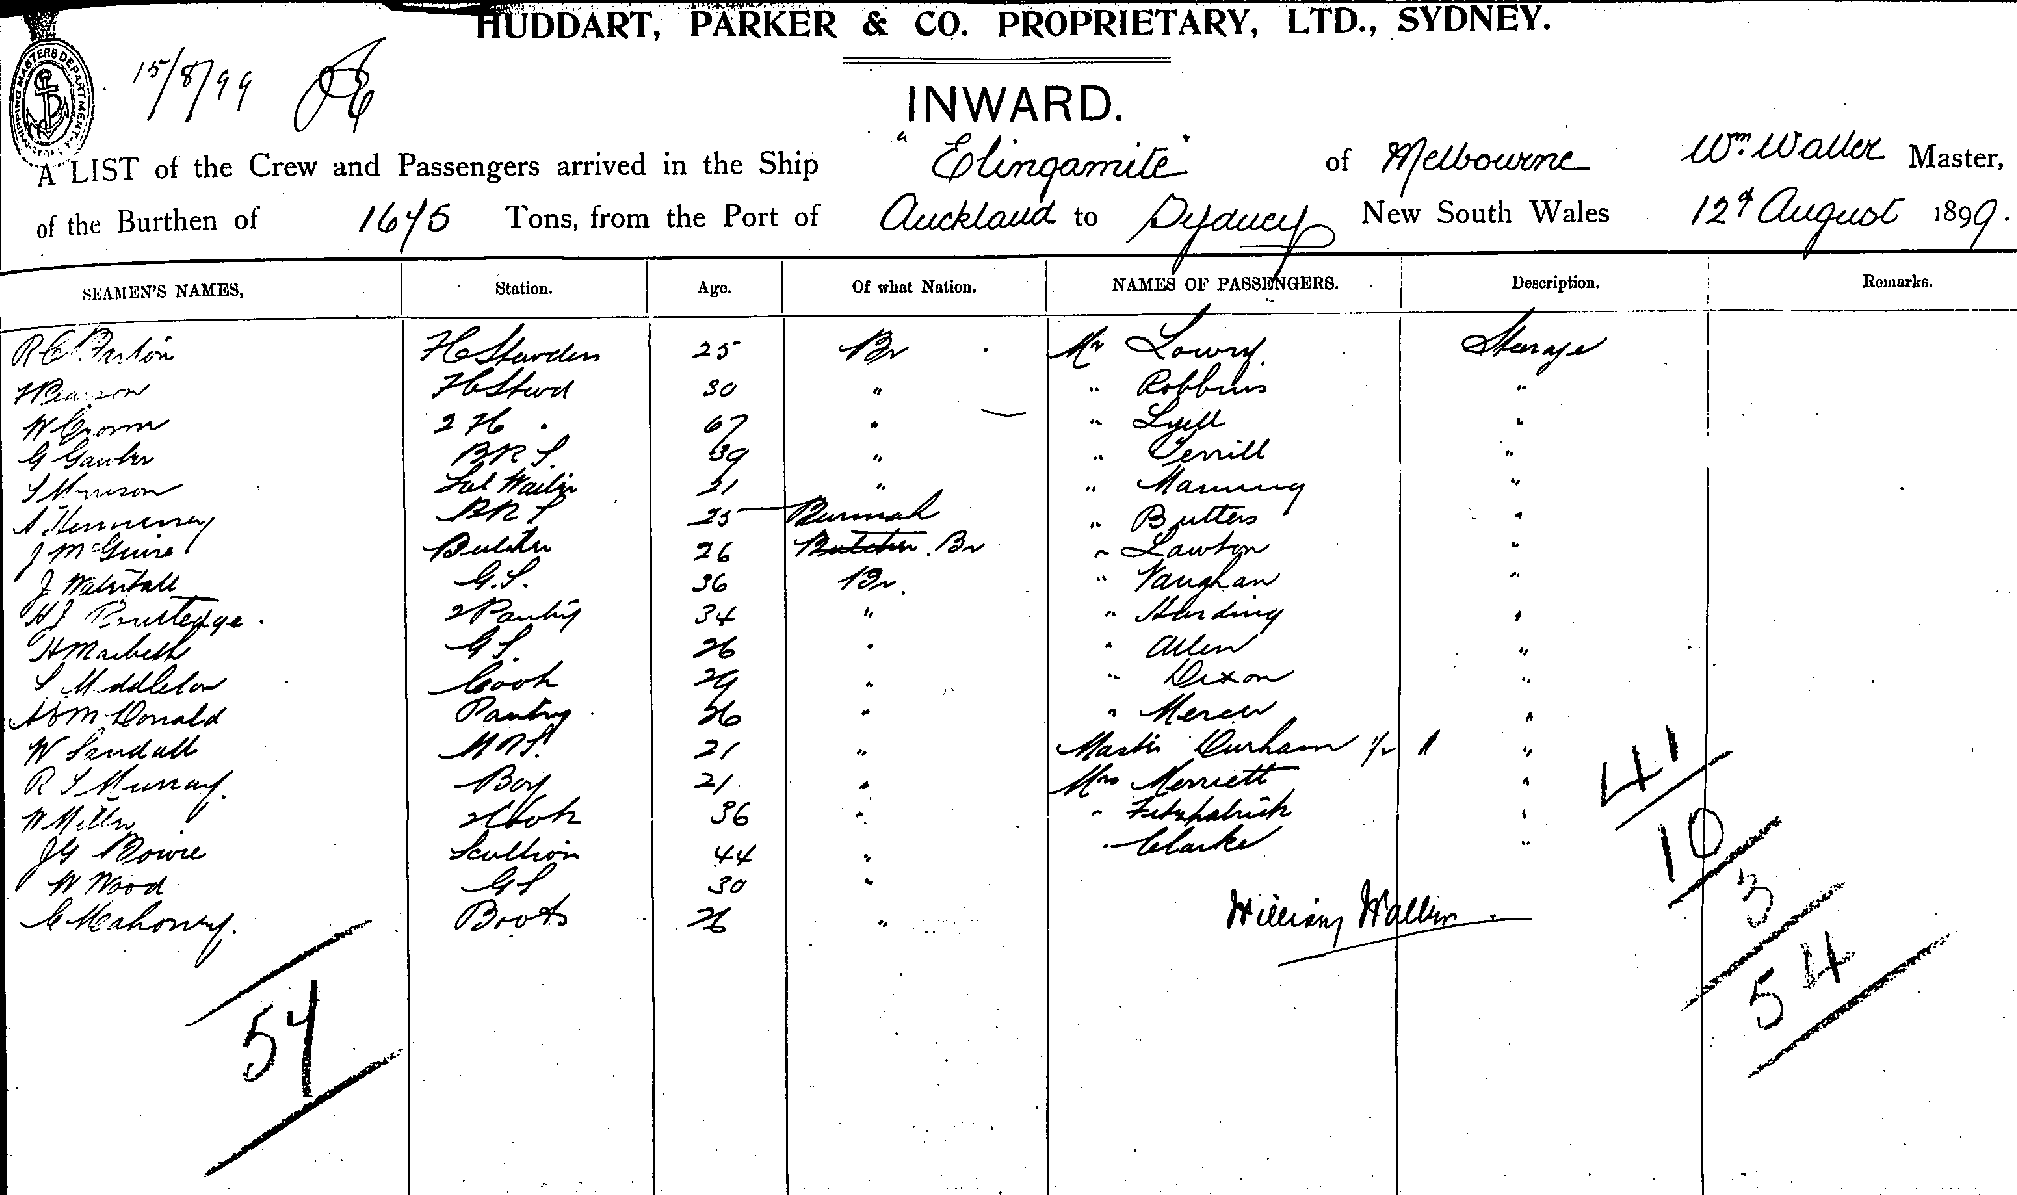 HUDDART, PARKER & CO. PROPRIETARY, LTD., SYDNEY.
15/8/99
INWARD.
A LIST of the Crew and Passengers arrived in the Ship "Elingamite" of Melbourne Wm. Waller Master,
of the Burthen of 1675 Tons, from the Port of Auckland to Sydney New South Wales 12th August 1899.
SEAMEN'S NAMES, Station. Age. Of what Nation. NAMES OF PASSENGERS. Description. Remarks.
R C Barton 25 Br Mr Lowry Sterage
H Pearson 30 " " Robbins "
W Crown 2 67 " " Lyell "
G Gawler B R S. 39 " " Terrill "
Morrison Sal Waiter 21 " " Manning "
A Hennessey B R S 25 Burmah " Butters "
J McGuire Butcher 26 Butcher. Br " Lawton "
J Waterfall G.S. 36 Br. " Vaughan "
H J Routledge. 2 Pantry 34 " " Harding "
H Macbeth G S. 26 " " Allen "
S Middleton Cook 29 " " Dixon "
McDonald Pantry 26 " " Mercer "
W Sandall 21 " Master Durham "
R S Murray. Boy 21 " Mrs Merriett "
W Miller 36 " " Fitzpatrick "
J G Bowie Scullion 44 " " Clarke "
W Wood G S 30 "
C Mahoney. Boots 26 "
William Waller
41
10
3
54
54